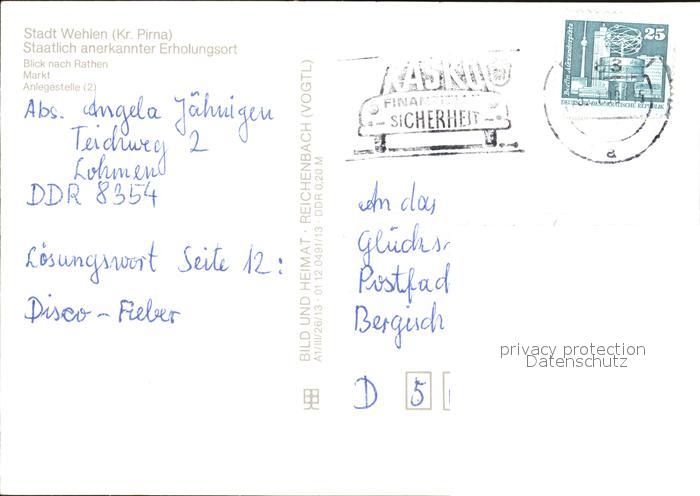 Stadt Wehlen (Kr. Pirna)
Staatlich anerkannter Erholungsort
Blick nach Rathen
Markt
Anlegestelle (2)
Abs. Angela Jähnigen
Teichweg 2
Lohmen
DDR 8354
Lösungswort Seite 12:
Disco-Fieber
BILD UND HEIMAT · REICHENBACH (VOGTL)
A1/III/26/13 · 01 12 0491/13 · DDR 0,20 M
KASKO
FINAN
SICHERHEIT
25
Berlin, Alexanderplatz
DEUTSCHE DEMOKRATISCHE REPUBLIK
a
An das
Glücks
Postfad
Bergisch
D 5
privacy protection
Datenschutz